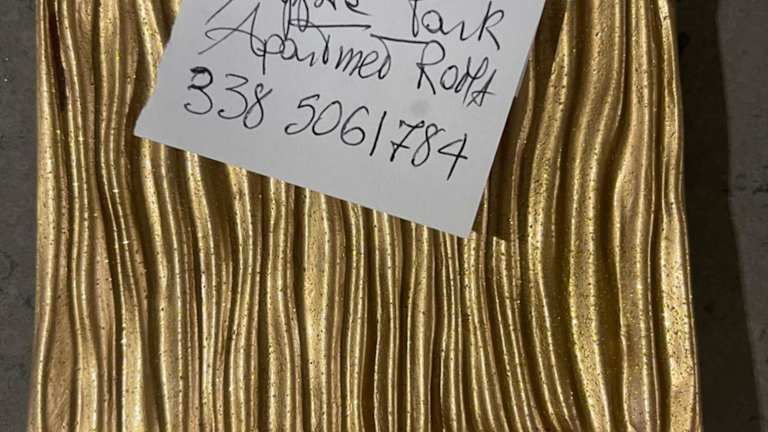 Park
Apartmet ROMA
338 5061784